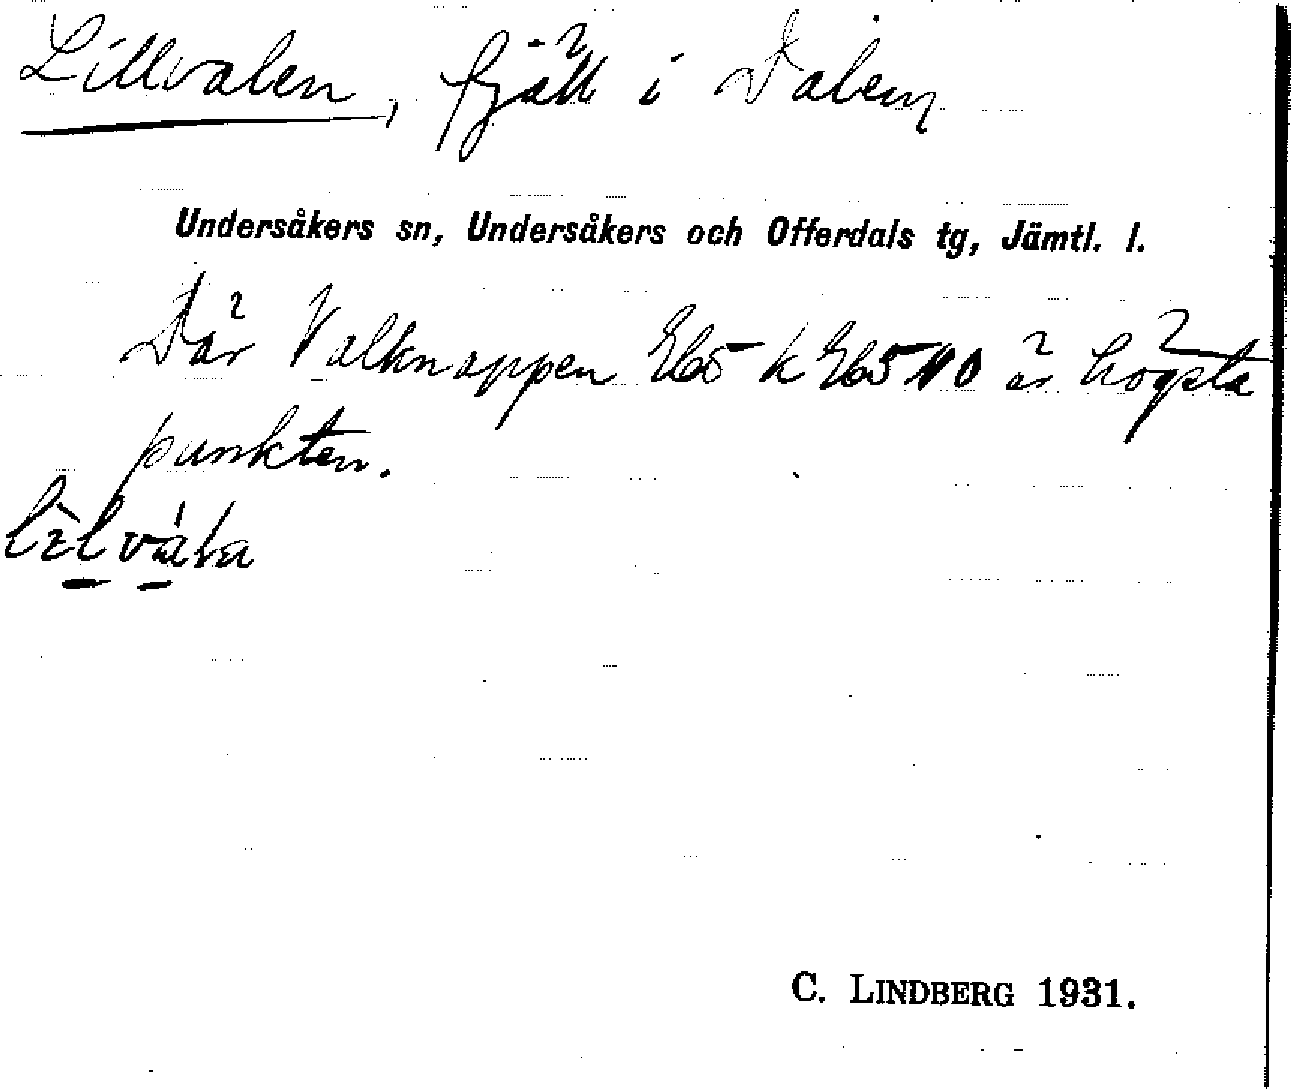 Lillvalen, fjäll i Dalen
Undersåkers sn, Undersåkers och Offerdals tg, Jämtl. l.
Där Valknappen är högsta
punkten.
C. LINDBERG 1931.